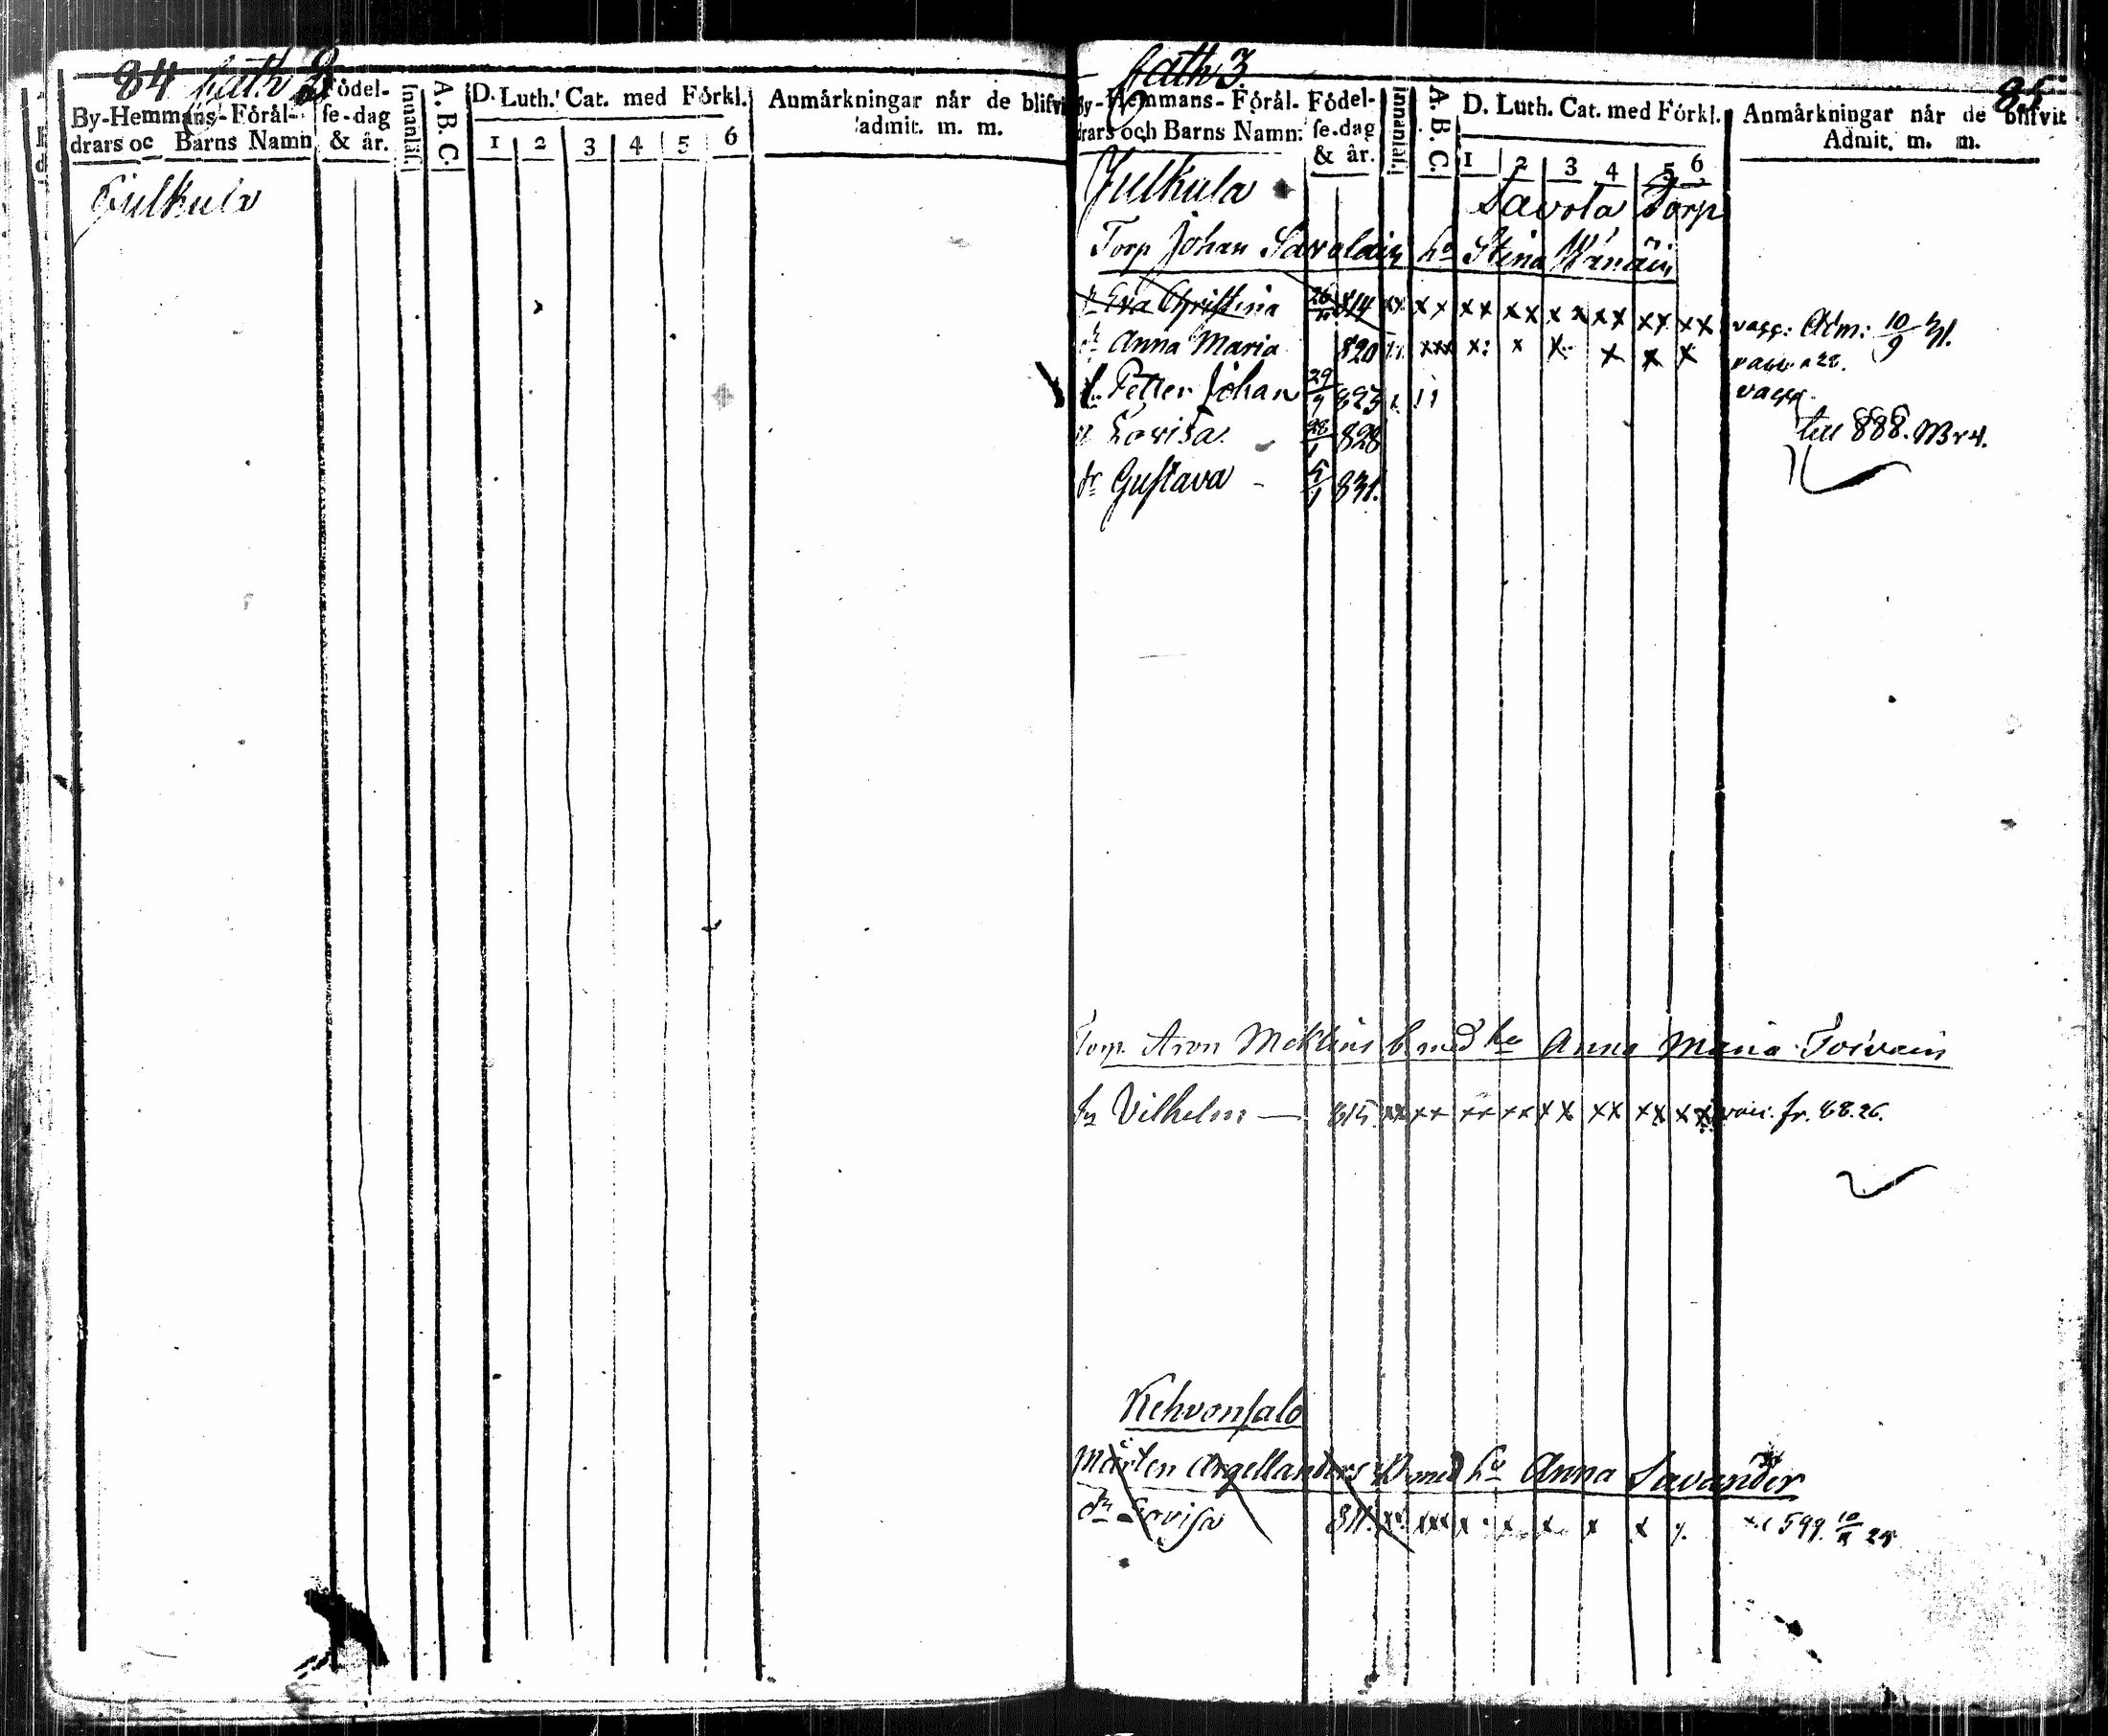 84 Cath 3
By-Hemmans-Förål-
drars oc Barns Namn
Födel-
se-dag
& år.
Innanläs.
A. B. C.
D. Luth. Cat. med Förkl.
1 2 3 4 5 6
Anmärkningar når de blifvi
admit. m. m.
Julkula
Cath 3
85
By-Hemmans-Förål-
drars och Barns Namn.
Födel-
se-dag
& år.
Innanläs.
A. B. C.
D. Luth. Cat. med Förkl.
1 2 3 4 5 6
Anmårkningar når de blifvit
Admit. m. m.
Julkula
Savola Torp
Torp Johan Savolain hu Stina Wänäin
dr Eva Christina 26 814 xx xx xx xx xx xx xx xx vacc: Adm: 10/9 31.
dr Anna Maria 820 xxx x: x x x x x
Petter Johan 29/9 823 vacc.
dr Lovisa 28/1 828 till 888. M v 4.
dr Gustava - 5/1 831.
Torp. Aron Meklins b med hu Anna Maria Toivain
Sn Vilhelm — 815. xx xx xx xx xx xx xx xx vac. fr. 68.26.
Kehvonsalo
Mårten Argellanders D med hu Anna Savander
dr Lovisa 811. xx xxx x x x x x 599. 25